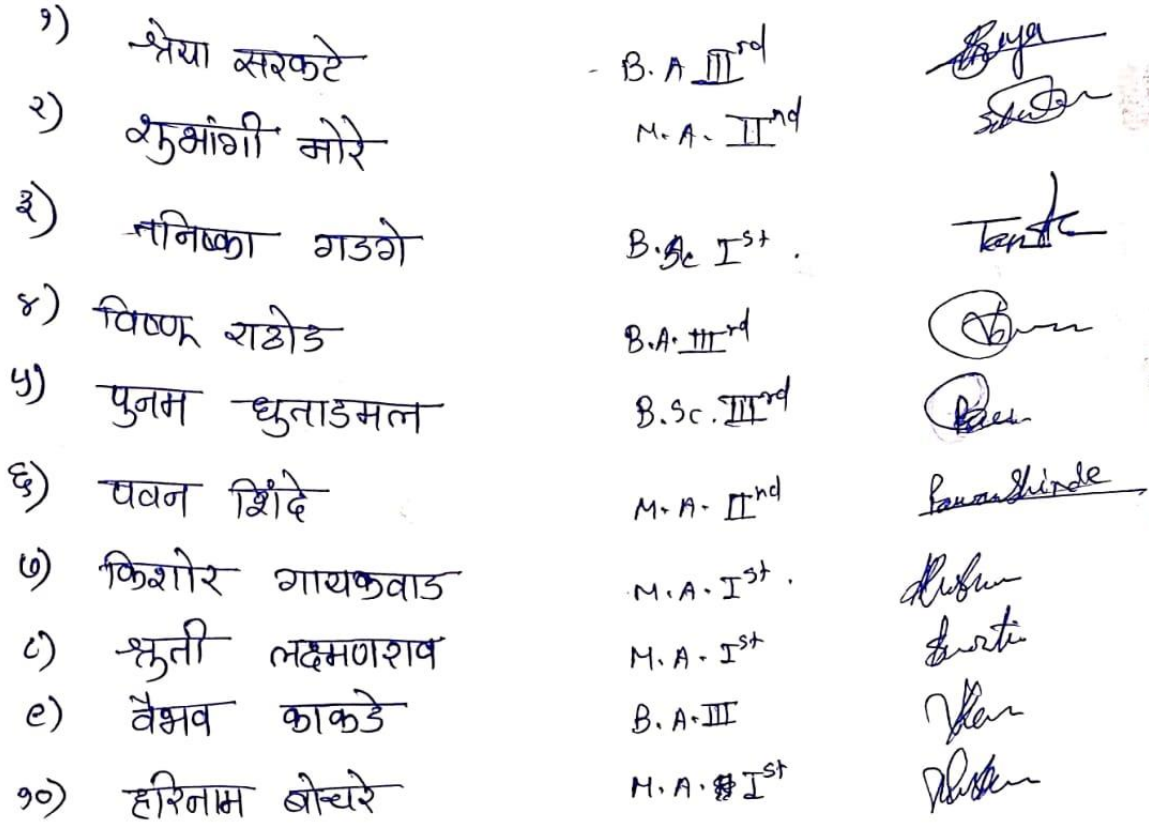 १) श्रेया सरकटे - B. A IIIrd Shreya
२) शुभांगी मोरे M. A. IInd
३) तनिष्का गडगे B.Sc Ist .
४) विष्णु राठोड B.A. IIIrd
५) पुनम घुताडमल B.Sc. IIIrd
६) पवन शिंदे M. A. IInd Pawan Shinde
७) किशोर गायकवाड M. A. Ist .
८) श्रुती लक्ष्मणराव M. A. Ist
९) वैभव काकडे B. A. III
१०) हरिनाम बोचरे M. A. Ist